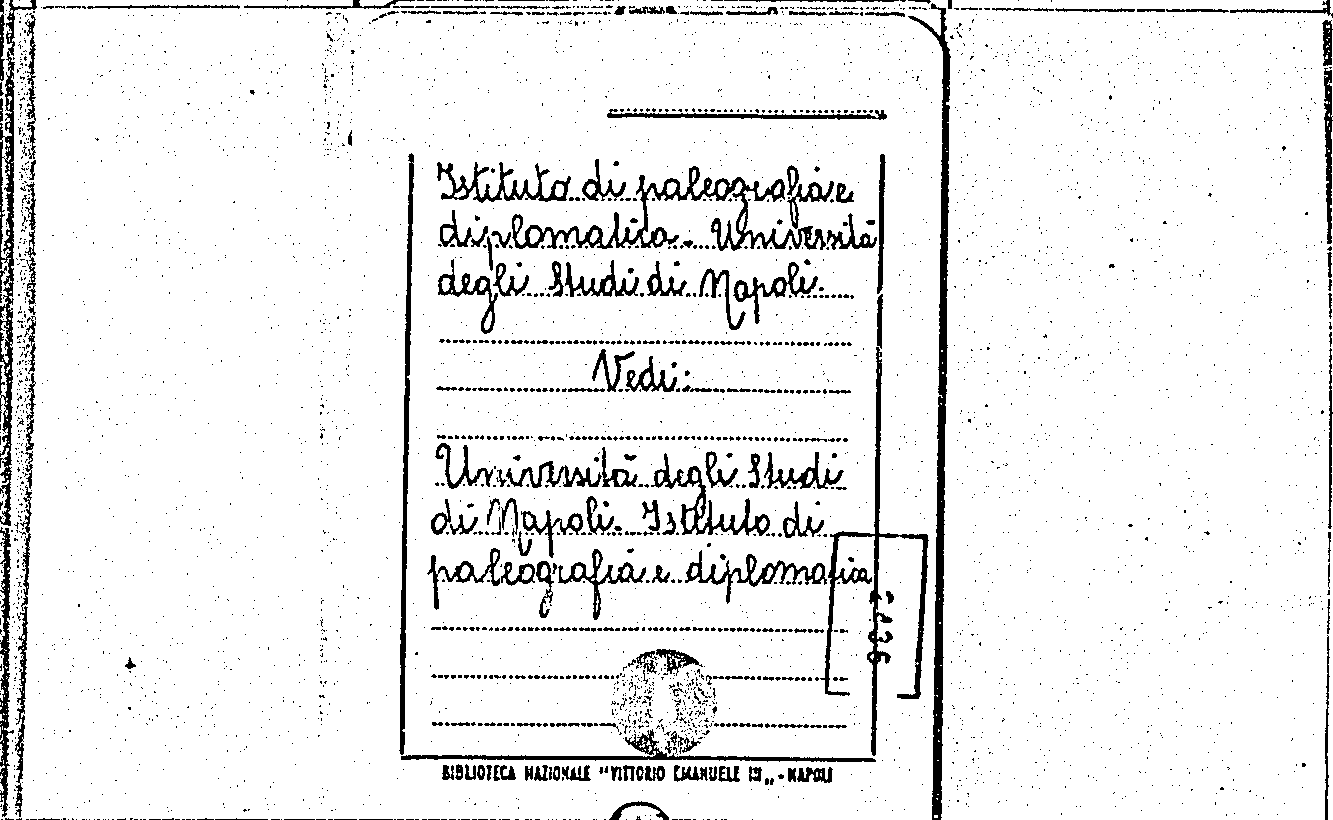 Istituto di paleografia e
diplomatica. Università
degli Studi di Napoli.
Vedi:
Università degli Studi
di Napoli. Istituto di
paleografia e diplomatica
BIBLIOTECA NAZIONALE "VITTORIO EMANUELE III„ - NAPOLI